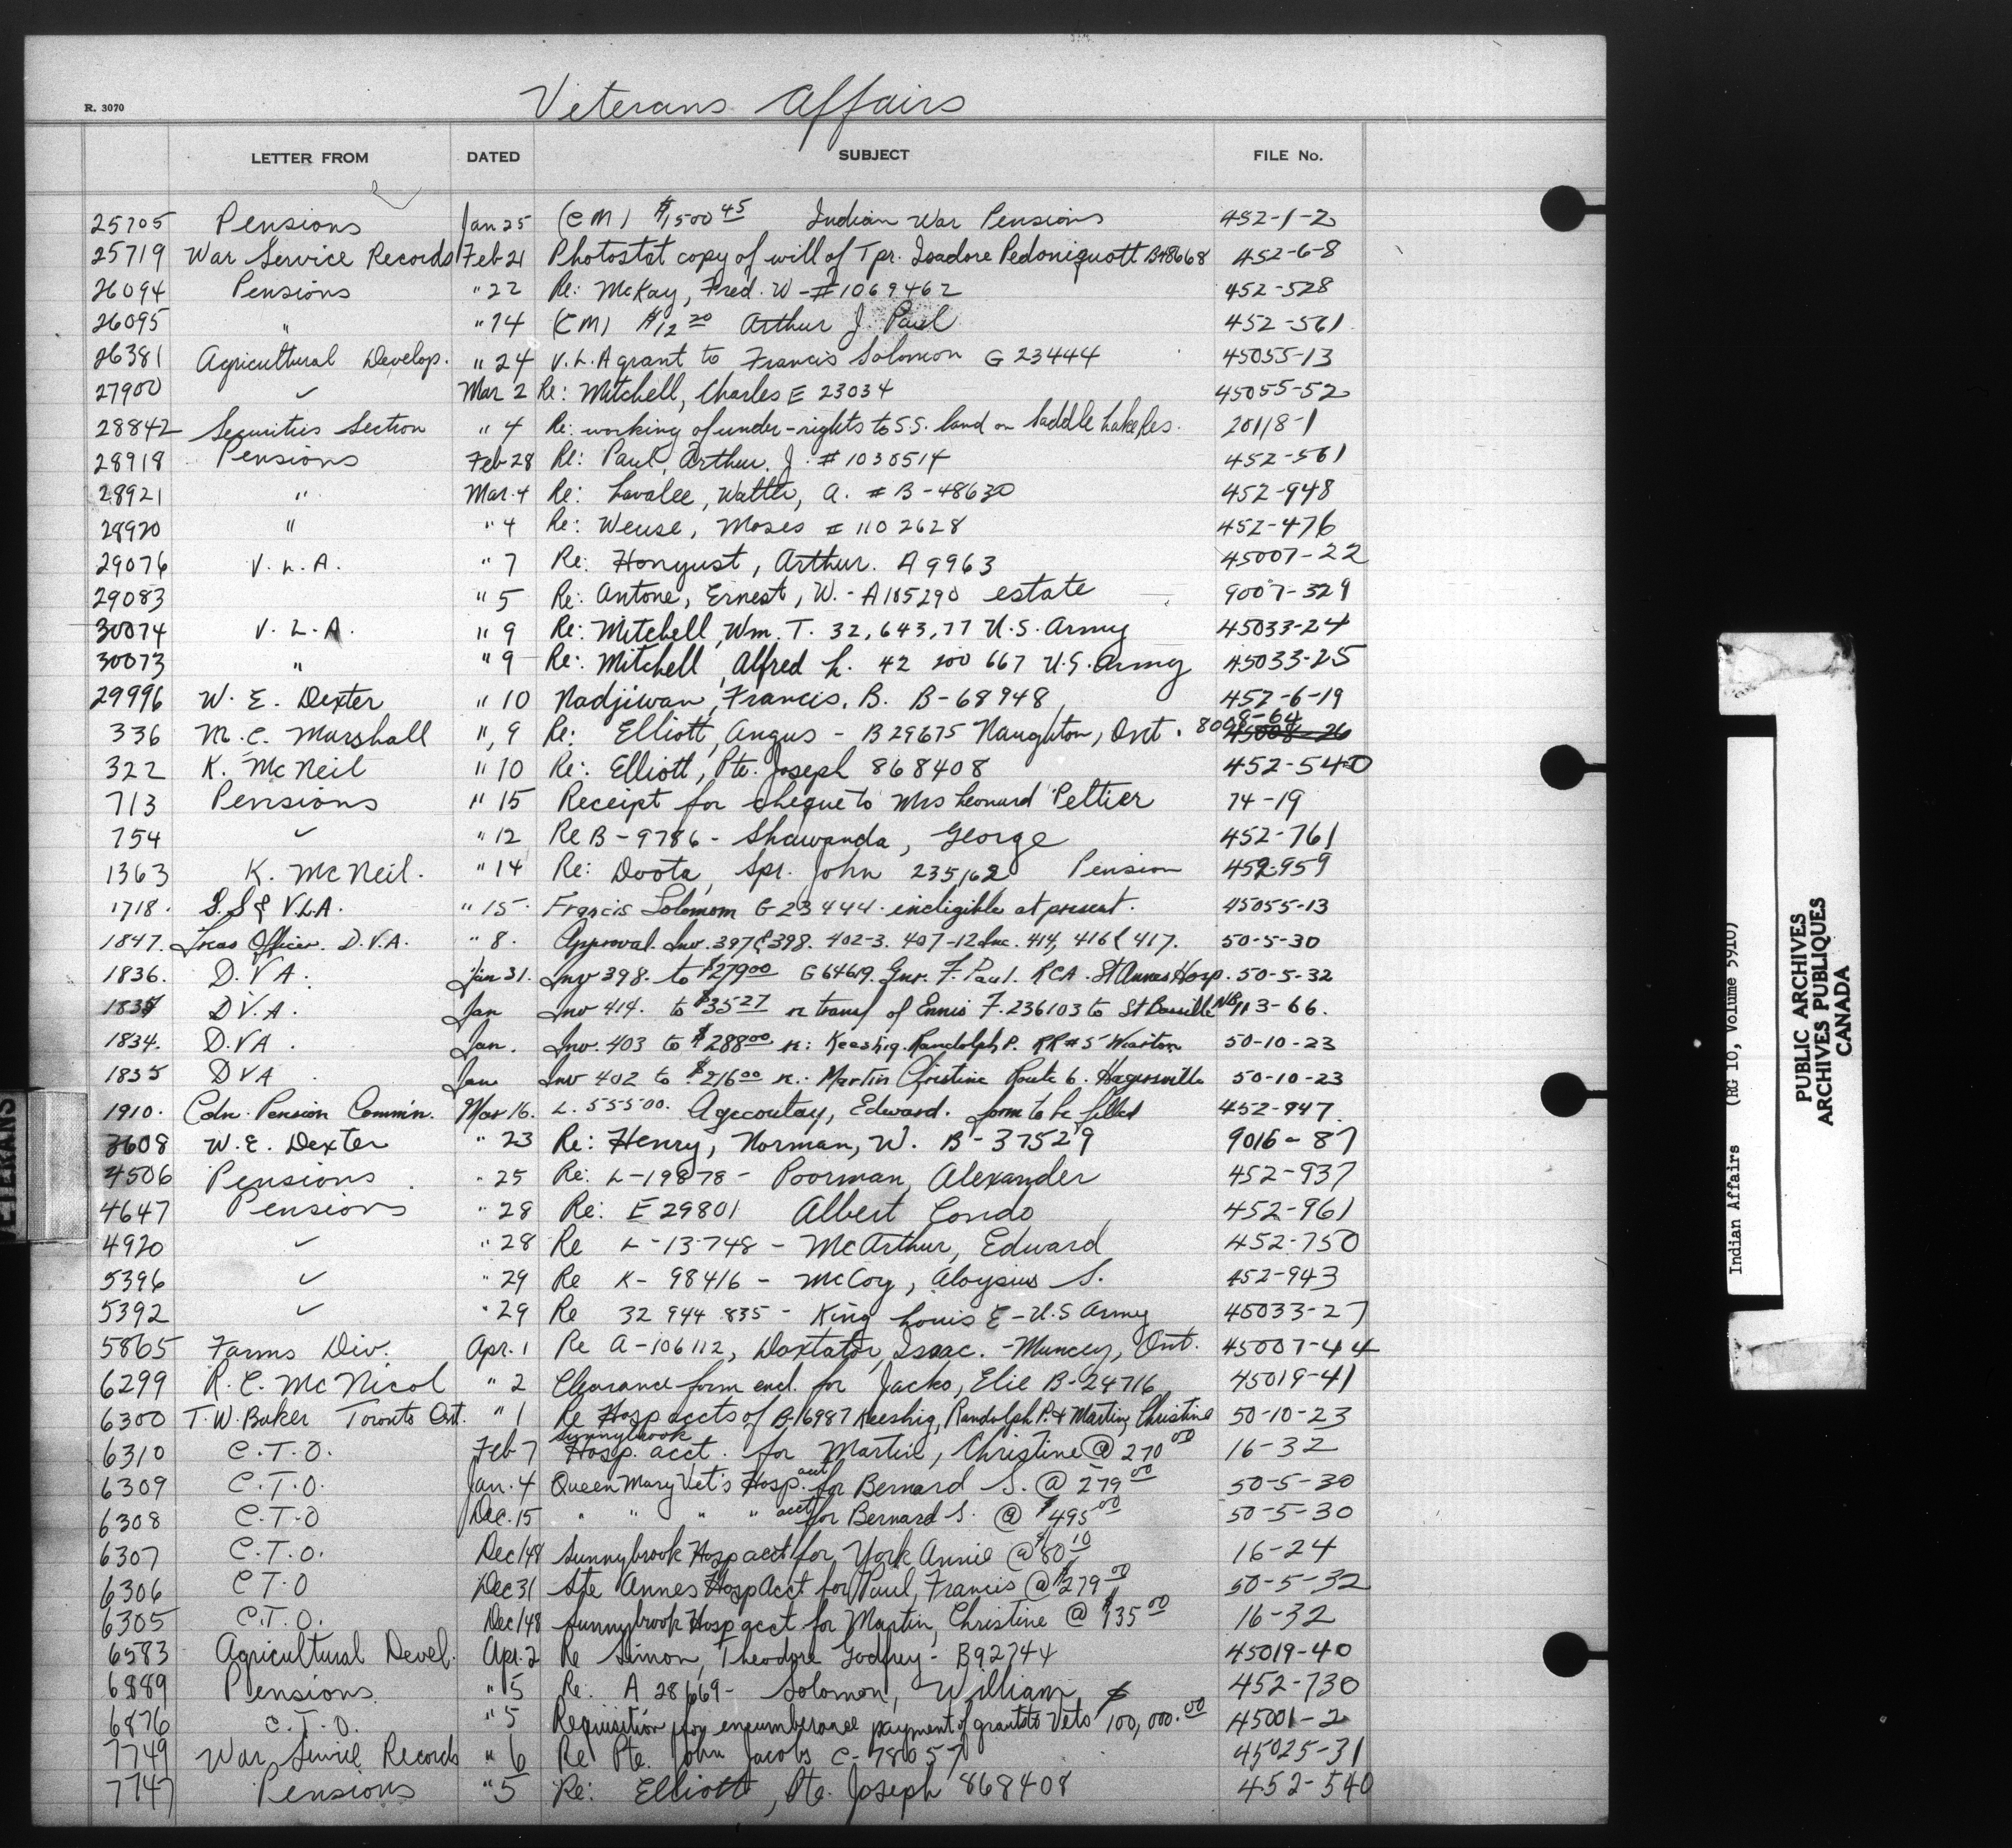 R. 3070
Veterans Affairs
LETTER FROM DATED SUBJECT FILE No.
25705 Pensions Jan 25 (CM) $1,500 45 Indian War Pensions 452-1-2
25719 War Service Records Feb 21 Photostat copy of will of Tpr. Isadore Pedoniquott B48668 452-6-8
26094 Pensions " 22 Re: McKay, Fred. W - #1069462 452-528
26095 " " 24 (CM) $12 20 Arthur J. Paul 452-561
26381 Agricultural Develop. " 24 V.L.A grant to Francis Solomon G 23444 45055-13
27900 ✓ Mar 2 Re: Mitchell, Charles E 23034 45055-52
28842 Securities Section " 4 Re: working of under-rights to S.S. land on Saddle Lake Res. 20118-1
28918 Pensions Feb 28 Re: Paul, Arthur. J. #1030514 452-561
28921 " Mar. 4 Re: Lavalee, Walter, A. # B-48630 452-948
28920 " " 4 Re: Weuse, Moses # 1102628 452-476
29076 V.L.A. " 7 Re: Honyust, Arthur. A 9963 45007-22
29083 " 5 Re: Antone, Ernest, W. - A105290 estate 9007-329
30074 V.L.A. " 9 Re: Mitchell, Wm. T. 32,643,77 U.S. Army 45033-24
30073 " " 9 Re: Mitchell, Alfred L. 42 200 667 U.S. Army 45033-25
29996 W. E. Dexter " 10 Nadjiwan, Francis, B. B-68948 452-6-19
336 M. C. Marshall " 9 Re: Elliott, Angus - B 29675 Naughton, Ont. 8008-64 45008-26
322 K. McNeil " 10 Re: Elliott, Pte. Joseph 868408 452-540
713 Pensions " 15 Receipt for cheque to Mrs Leonard Peltier 74-19
754 ✓ " 12 Re B-9786 - Shawanda, George 452-761
1363 K. McNeil. " 14 Re: Doota, Spr. John 235162 Pension 452-959
1718. S.S & V.L.A. " 15. Francis Solomom G23444. ineligible at present. 45055-13
1847. Treas Officer. D.V.A. " 8. Approval. Inv. 397 & 398. 402-3. 407-12 Inc. 414, 416 & 417. 50-5-30
1836. D.V A. Jan 31. Inv 398. to $279 00 G 64619. Gnr. F. Paul. RCA. St Annes Hosp. 50-5-32
1837 D.V.A. Jan Inv 414. to $35 27 re transf of Ennis F. 236103 to St Basille NB 113-66.
1834. D.VA. Jan. Inv. 403 to $288 00 re: Keeshig. Randolph P. RR#5 Wiarton 50-10-23
1835 DVA. Jan Inv 402 to $216 00 re: Martin Christine Route 6. Hagersville 50-10-23
1910. Cdn. Pension Comm'n. Mar 16. L. 55500. Agecoutay, Edward. form to be filled 452-947
3608 W. E. Dexter " 23 Re: Henry, Norman, W. B-37529 9016-87
4506 Pensions. " 25 Re: L-19878 - Poorman, Alexander 452-937
4647 Pensions " 28 Re: E 29801 Albert Condo 452-961
4920 ✓ " 28 Re L-13748 - McArthur, Edward 452-750
5396 ✓ " 29 Re K-98416 - McCoy, Aloysius S. 452-943
5392 ✓ " 29 Re 32 944 835 - King Louis E - U.S Army 45033-27
5865 Farms Div. Apr. 1 Re A-106112, Doxtator, Isaac. - Muncey, Ont. 45007-44
6299 R. C. McNicol " 2 Clearance form encl. for Jacko, Elie B-24716 45019-41
6300 T. W. Baker Toronto Ont. " 1 Re Hosp accts of B-16987 Keeshig, Randolph P. & Martin, Christine 50-10-23
6310 C.T.O. Feb 7 Sunnybrook Hosp. acct. for Martin, Christine @ 270 00 16-32
6309 C.T.O. Jan. 4 Queen Mary Vet's Hosp. acct for Bernard S. @ 279 00 50-5-30
6308 C.T.O Dec. 15 " " " " acct for Bernard S. @ $495 00 50-5-30
6307 C.T.O. Dec/48 Sunnybrook Hosp acct for York Annie @ $80 10 16-24
6306 C T.O Dec 31 Ste Annes Hosp Acct for Paul, Francis @ $279 00 50-5-32
6305 C.T.O. Dec/48 Sunnybrook Hosp acct for Martin, Christine @ $135 00 16-32
6583 Agricultural Devel. Apr. 2 Re Simon, Theodore Godfrey - B92744 45019-40
6889 Pensions. " 5 Re: A 28669 - Solomon, William 452-730
6876 C.T.O. " 5 Requisition for encumberance payment of grants to Vets $100,000.00 45001-2
7749 War Service Records " 6 Re Pte. John Jacobs C-78057 45025-31
7747 Pensions " 5 Re: Elliott, Pte. Joseph 868408 452-540
Indian Affairs (RG 10, Volume 5910)
PUBLIC ARCHIVES
ARCHIVES PUBLIQUES
CANADA